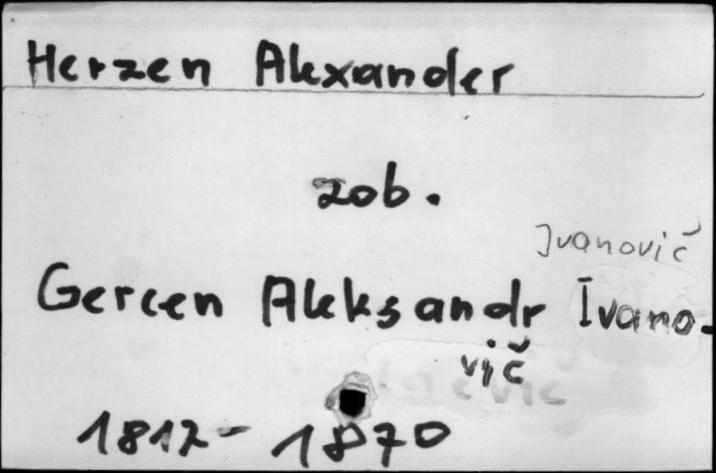 Herzen Alexander
zob.
Jvanovič
Gercen Aleksandr Ivano-
vič
1812 - 1870